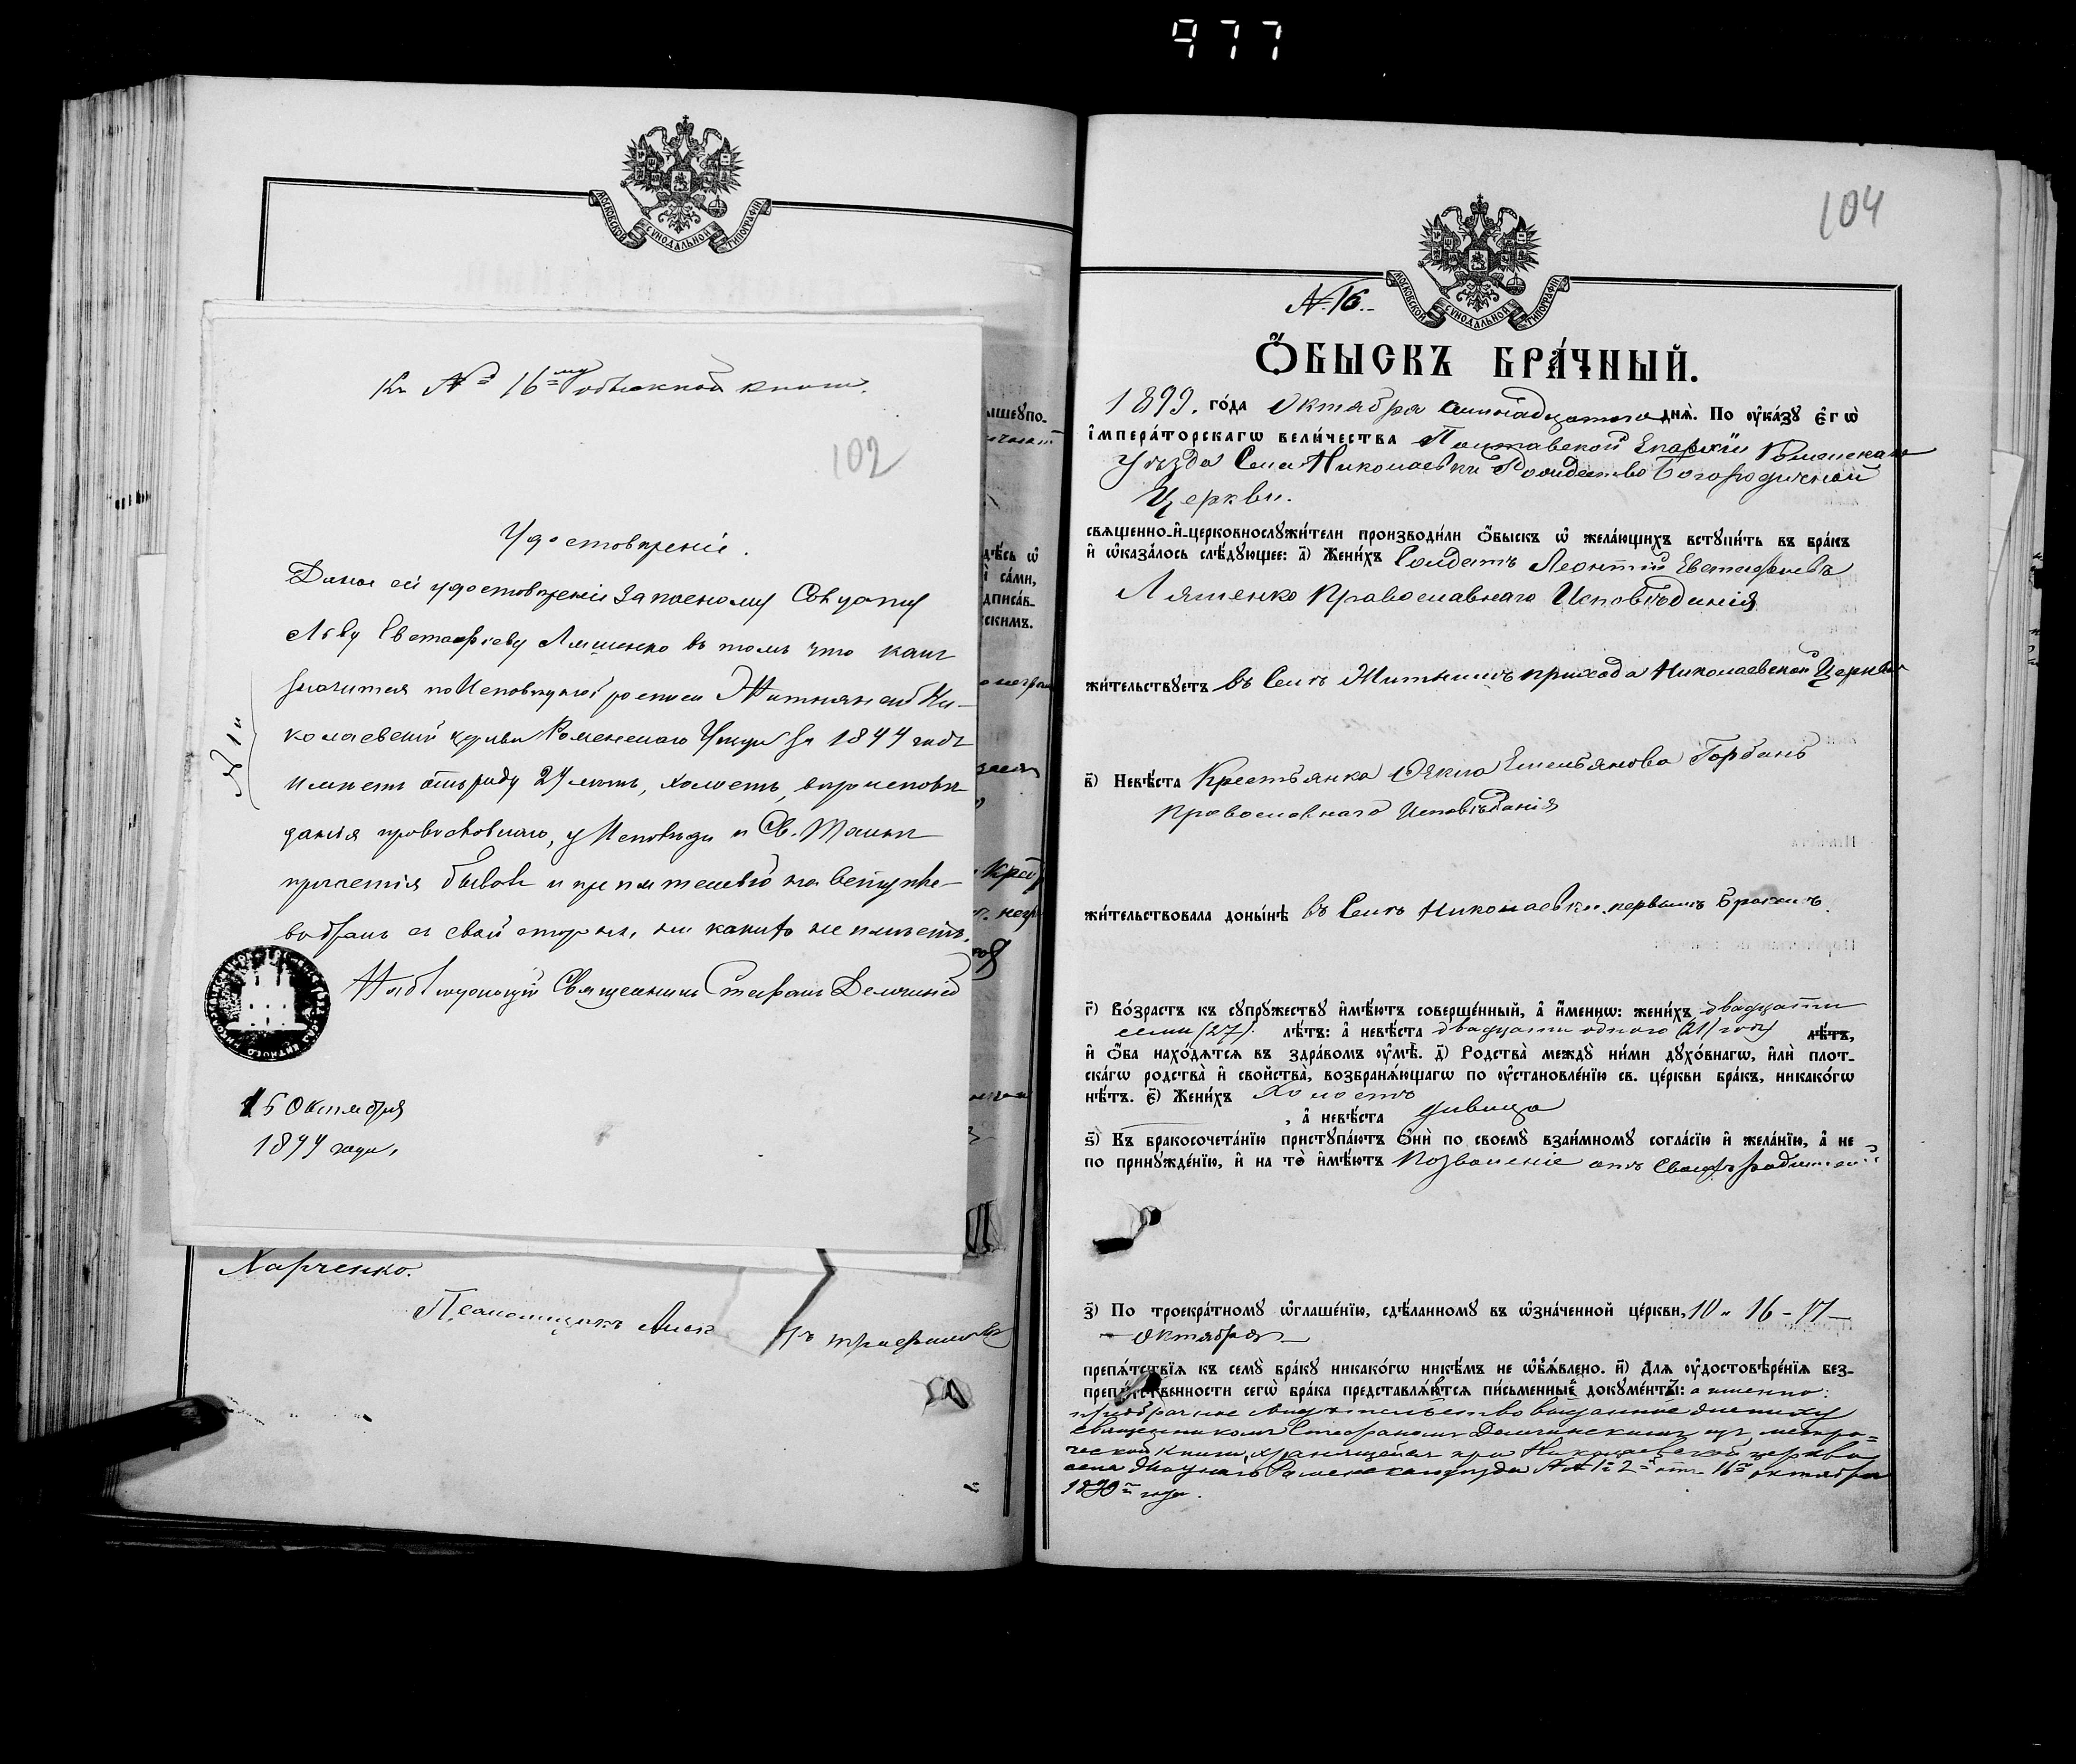 977
МОСКОВСКОЙ СѴНОДАЛЬНОЙ ТИПОГРАФІИ
Къ № 16му обыскной книги.
102
Удостовѣреніе.
Дано сіе удостовѣреніе Запасному Солдату
Льву Евстафіеву Ляшенко въ томъ что какъ
значится по Исповѣдной росписи Житнянской Ни-
колаевской церкви Роменскаго Уѣзда за 1899 годъ
имѣетъ отъ роду 27 лѣтъ, холостъ, вѣроисповѣ-
данія православнаго, у Исповѣди и Св. Таинъ
причастія бывалъ и препятствій на вступле-
въ бракъ съ свой стороны, ни какихъ не имѣетъ.
Наблюдающій Священникъ Стефанъ
№ 1й
16 Октября
1899 года,
Харченко.
Псаломщикъ
ышеупо-
дѣсь ѡ
і са́ми,
дписа́в-
скимъ.
104
МОСКОВСКОЙ СѴНОДАЛЬНОЙ ТИПОГРАФІИ
№ 16.
Ѻ҆БЫСКЪ БРА́ЧНЫЙ.
1899. го́да Октября дня̀. По ѹ҆ка́зꙋ є҆гѡ̀
і҆мпера́торскагѡ вели́чества Полтавской Епархіи Роменскаго
Уѣзда Села Николаевки Рождество Богородичной
Церкви.
свѧще́нно-и҆-церковнослꙋжи́тели производи́ли ѻ҆́быскъ ѡ҆ жела́ющихъ встꙋпи́ть въ бра́къ
и҆ ѡ҆каза́лось слѣ́дꙋющее: а҃) Жени́хъ Солдатъ Леонтій Евстафіевъ
Ляшенко Православнаго Исповѣданія
жи́тельствꙋетъ въ Селѣ Житномъ прихода Николаевской Церкви
в҃) Невѣ́ста Крестьянка Емельянова Горбань
Православнаго Исповѣданія
жи́тельствовала доны́нѣ въ Селѣ Николаевки. первымъ Бракомъ.
г҃) Во́зрастъ къ сꙋпрꙋ́жествꙋ и҆мѣ́ютъ соверше́нный, а҆ и҆́меннѡ: жени́хъ двадцати
семи (27) лѣ́тъ: а҆ невѣ́ста двадцати одного (21) году лѣ́тъ,
и҆ ѻ҆́ба нахо́дѧтсѧ въ здра́вомъ ѹ҆мѣ̀. д҃) Родства̀ междꙋ̀ ни́ми дꙋхо́внагѡ, и҆лѝ плот-
ска́гѡ родства̀ и҆ сво́йства̀, возбранѧ́ющагѡ по ѹ҆становле́нїю св. це́ркви бра́къ, никако́гѡ
нѣ́тъ. є҃) Жени́хъ холостъ
, а҆ невѣ́ста дѣвица
ѕ҃) Къ бракосочета́нїю пристꙋпа́ютъ ѻ҆нѝ по своемꙋ̀ взаи́мномꙋ согла́сїю и҆ жела́нїю, а҆ не
по принꙋжде́нїю, и҆ на то̀ и҆мѣ́ютъ позволеніе отъ Своихъ родителей
з҃) По троекра́тномꙋ ѡ҆глаше́нїю, сдѣ́ланномꙋ въ ѡ҆зна́ченной це́ркви, 10 - 16 - 17 -
- октября -
препѧ́тствїѧ къ семꙋ̀ бра́кꙋ никако́гѡ никѣ́мъ не ѡ҆б̾ѧ́влено. и҃) Длѧ ѹ҆достовѣ́ренїѧ без-
препѧ́тственности сегѡ̀ бра́ка представлѧ́ютсѧ пи́сьменный докꙋме́нтъ: а именно:
предбрачное свидѣтельство выданное жениху
священникомъ Стефаномъ изъ метри-
ческой книги, хранящейся при Николаевской церкви
села Житнаго Роменскаго уѣзда №№ 1й 2й отъ 16го октября
1899го года.